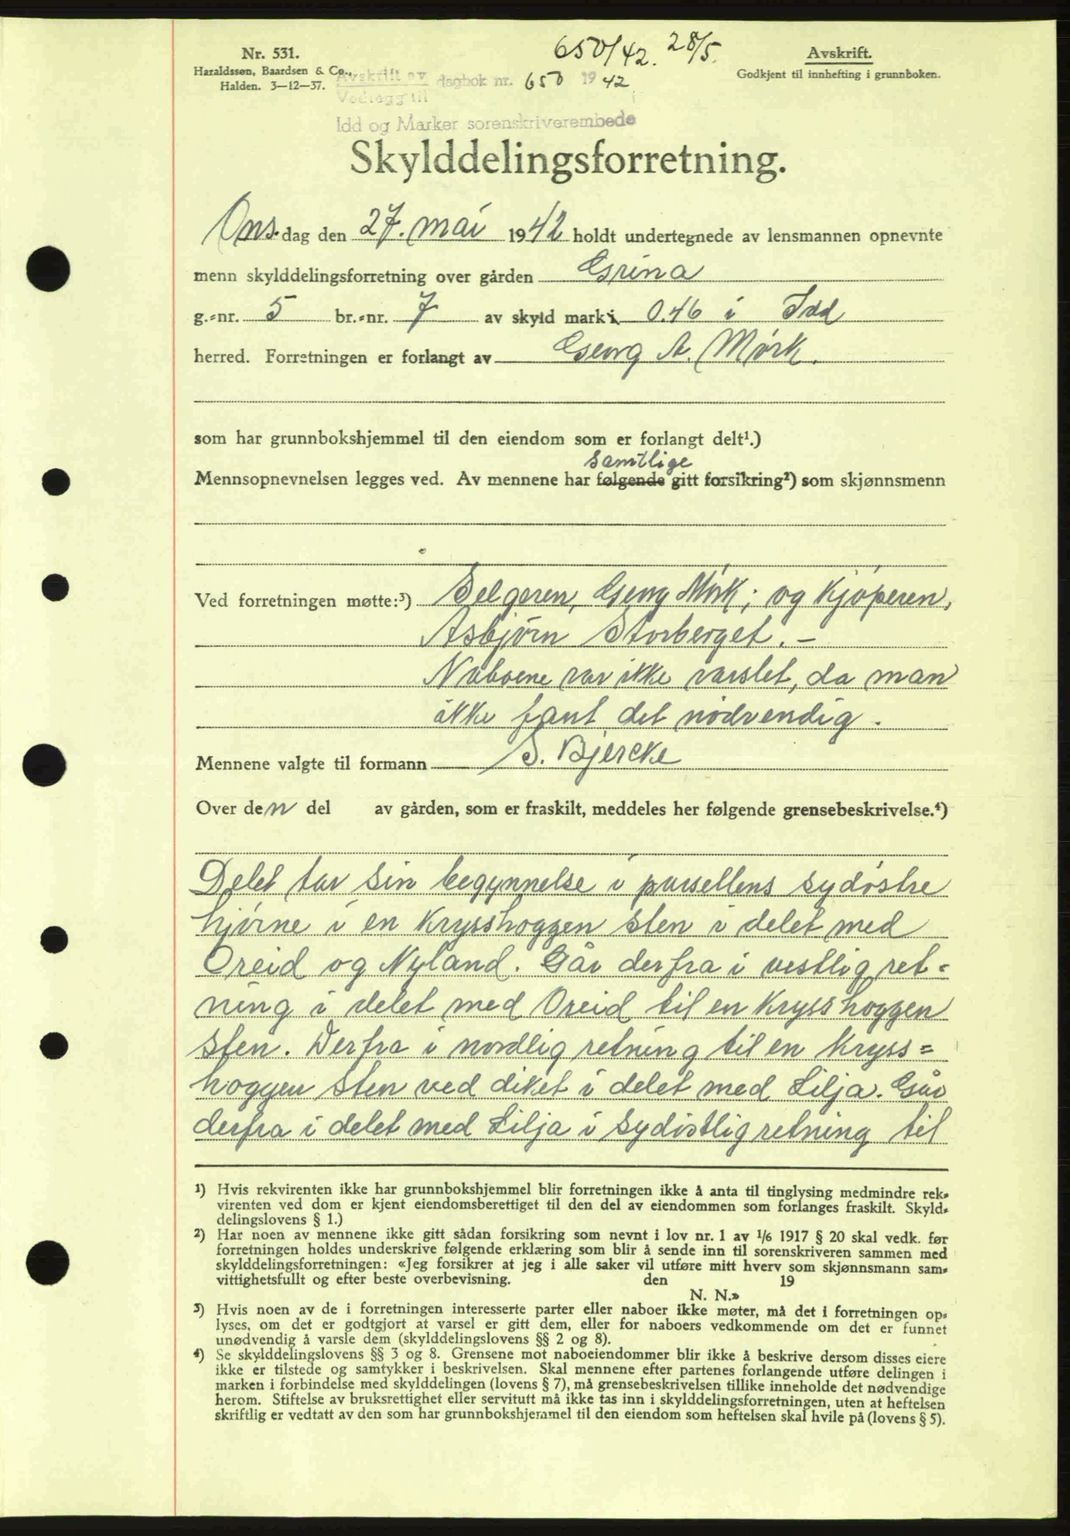 Nr. 531.
Haraldssøn, Baardsen & Co.,
Halden. 3—12—37.
650/42. 28/5.
Avskrift.
Godkjent til innhefting i grunnboken.
Avskrift av dagbok nr. 650 1942
Vedlegg til
Idd og Marker sorenskriverembede
Skylddelingsforretning.
Ons.dag den 27. mai 1942 holdt undertegnede av lensmannen opnevnte
menn skylddelingsforretning over gården Grina
g.-nr. 5 br.-nr. 7 av skyld mark 0.46 i Idd
herred. Forretningen er forlangt av Georg A. Mørk.
som har grunnbokshjemmel til den eiendom som er forlangt delt¹.)
samtlige
Mennsopnevnelsen legges ved. Av mennene har følgende gitt forsikring²) som skjønnsmenn
Ved forretningen møtte:³) Selgeren, Georg Mørk; og kjøperen,
Asbjørn Storberget. —
Naboene var ikke varslet, da man
ikke fant det nødvendig.
Mennene valgte til formann S. Bjercke
Over den del av gården, som er fraskilt, meddeles her følgende grensebeskrivelse.⁴)
Delet tar sin begynnelse i parsellens sydøstre
hjørne i en krysshoggen sten i delet med
Oreid og Nyland. Går derfra i vestlig ret-
ning i delet med Oreid til en krysshoggen
sten. Derfra i nordlig retning til en kryss=
hoggen sten ved diket i delet med Lilja. Går
derfra i delet med Lilja i sydøstlig retning til
¹) Hvis rekvirenten ikke har grunnbokshjemmel blir forretningen ikke å anta til tinglysing medmindre rek-
virenten ved dom er kjent eiendomsberettiget til den del av eiendommen som forlanges fraskilt. Skyld-
delingslovens § 1.)
²) Har noen av mennene ikke gitt sådan forsikring som nevnt i lov nr. 1 av 1/6 1917 § 20 skal vedk. før
forretningen holdes underskrive følgende erklæring som blir å sende inn til sorenskriveren sammen med
skylddelingsforretningen: «Jeg forsikrer at jeg i alle saker vil utføre mitt hverv som skjønnsmann sam-
vittighetsfullt og efter beste overbevisning. den 19
N. N.»
³) Hvis noen av de i forretningen interesserte parter eller naboer ikke møter, må det i forretningen op-
lyses, om det er godtgjort at varsel er gitt dem, eller for naboers vedkommende om det er funnet
unødvendig å varsle dem (skylddelingslovens §§ 2 og 8).
⁴) Se skylddelingslovens §§ 3 og 8. Grensene mot naboeiendommer blir ikke å beskrive dersom disses eiere
ikke er tilstede og samtykker i beskrivelsen. Skal mennene efter partenes forlangende utføre delingen i
marken i forbindelse med skylddelingen (lovens § 7), må grensebeskrivelsen tillike inneholde det nødvendige
herom. Stiftelse av bruksrettighet eller servitutt må ikke tas inn i skylddelingsforretningen, uten at heftelsen
skriftlig er vedtatt av den som har grunnbokshjemmel til den eiendom som heftelsen skal hvile på (lovens § 5).